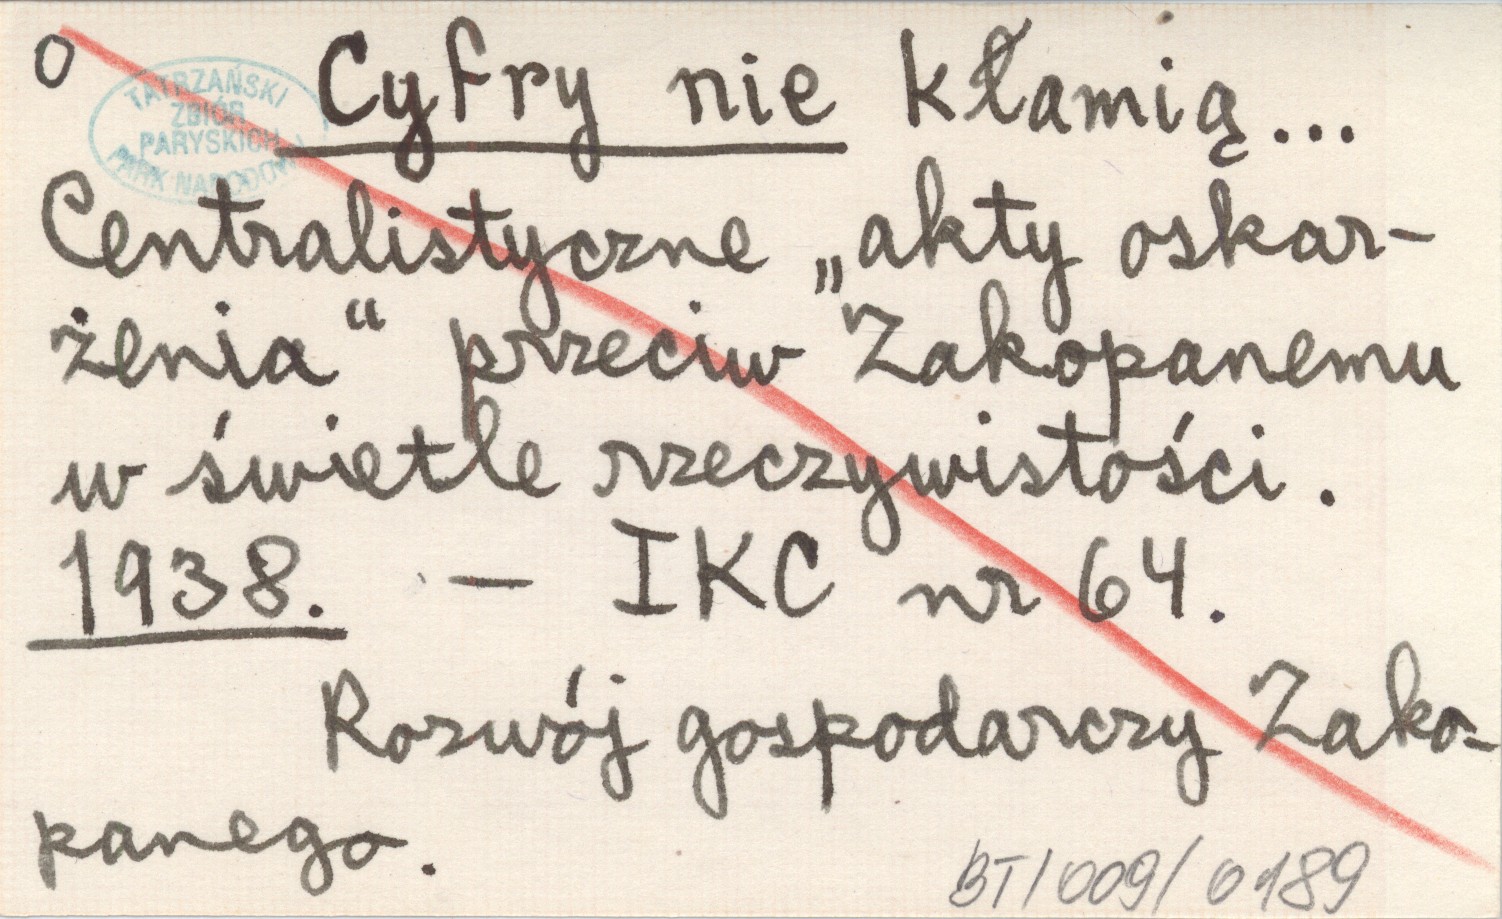 O Cyfry nie kłamią...
TATRZAŃSKI
ZBIÓR
PARYSKICH
PARK NARODOWY
Centralistyczne „akty oskar-
żenia“ przeciw Zakopanemu
w świetle rzeczywistości.
1938. — IKC nr 64.
Rozwój gospodarczy Zako-
panego.
BT/009/0189